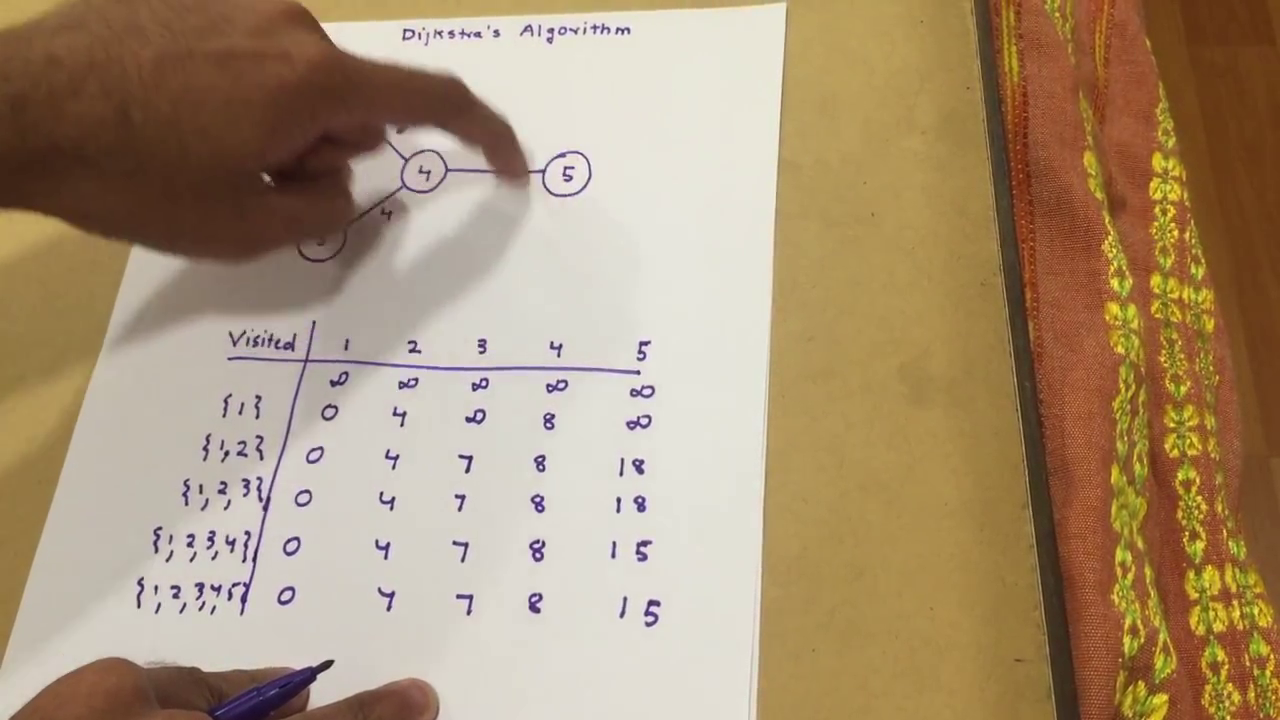 Dijkstra's Algorithm
4 5
4
Visited 1 2 3 4 5
∞ ∞ ∞ ∞ ∞
{1} 0 4 ∞ 8 ∞
{1,2} 0 4 7 8 18
{1,2,3} 0 4 7 8 18
{1,2,3,4} 0 4 7 8 15
{1,2,3,4,5} 0 4 7 8 15